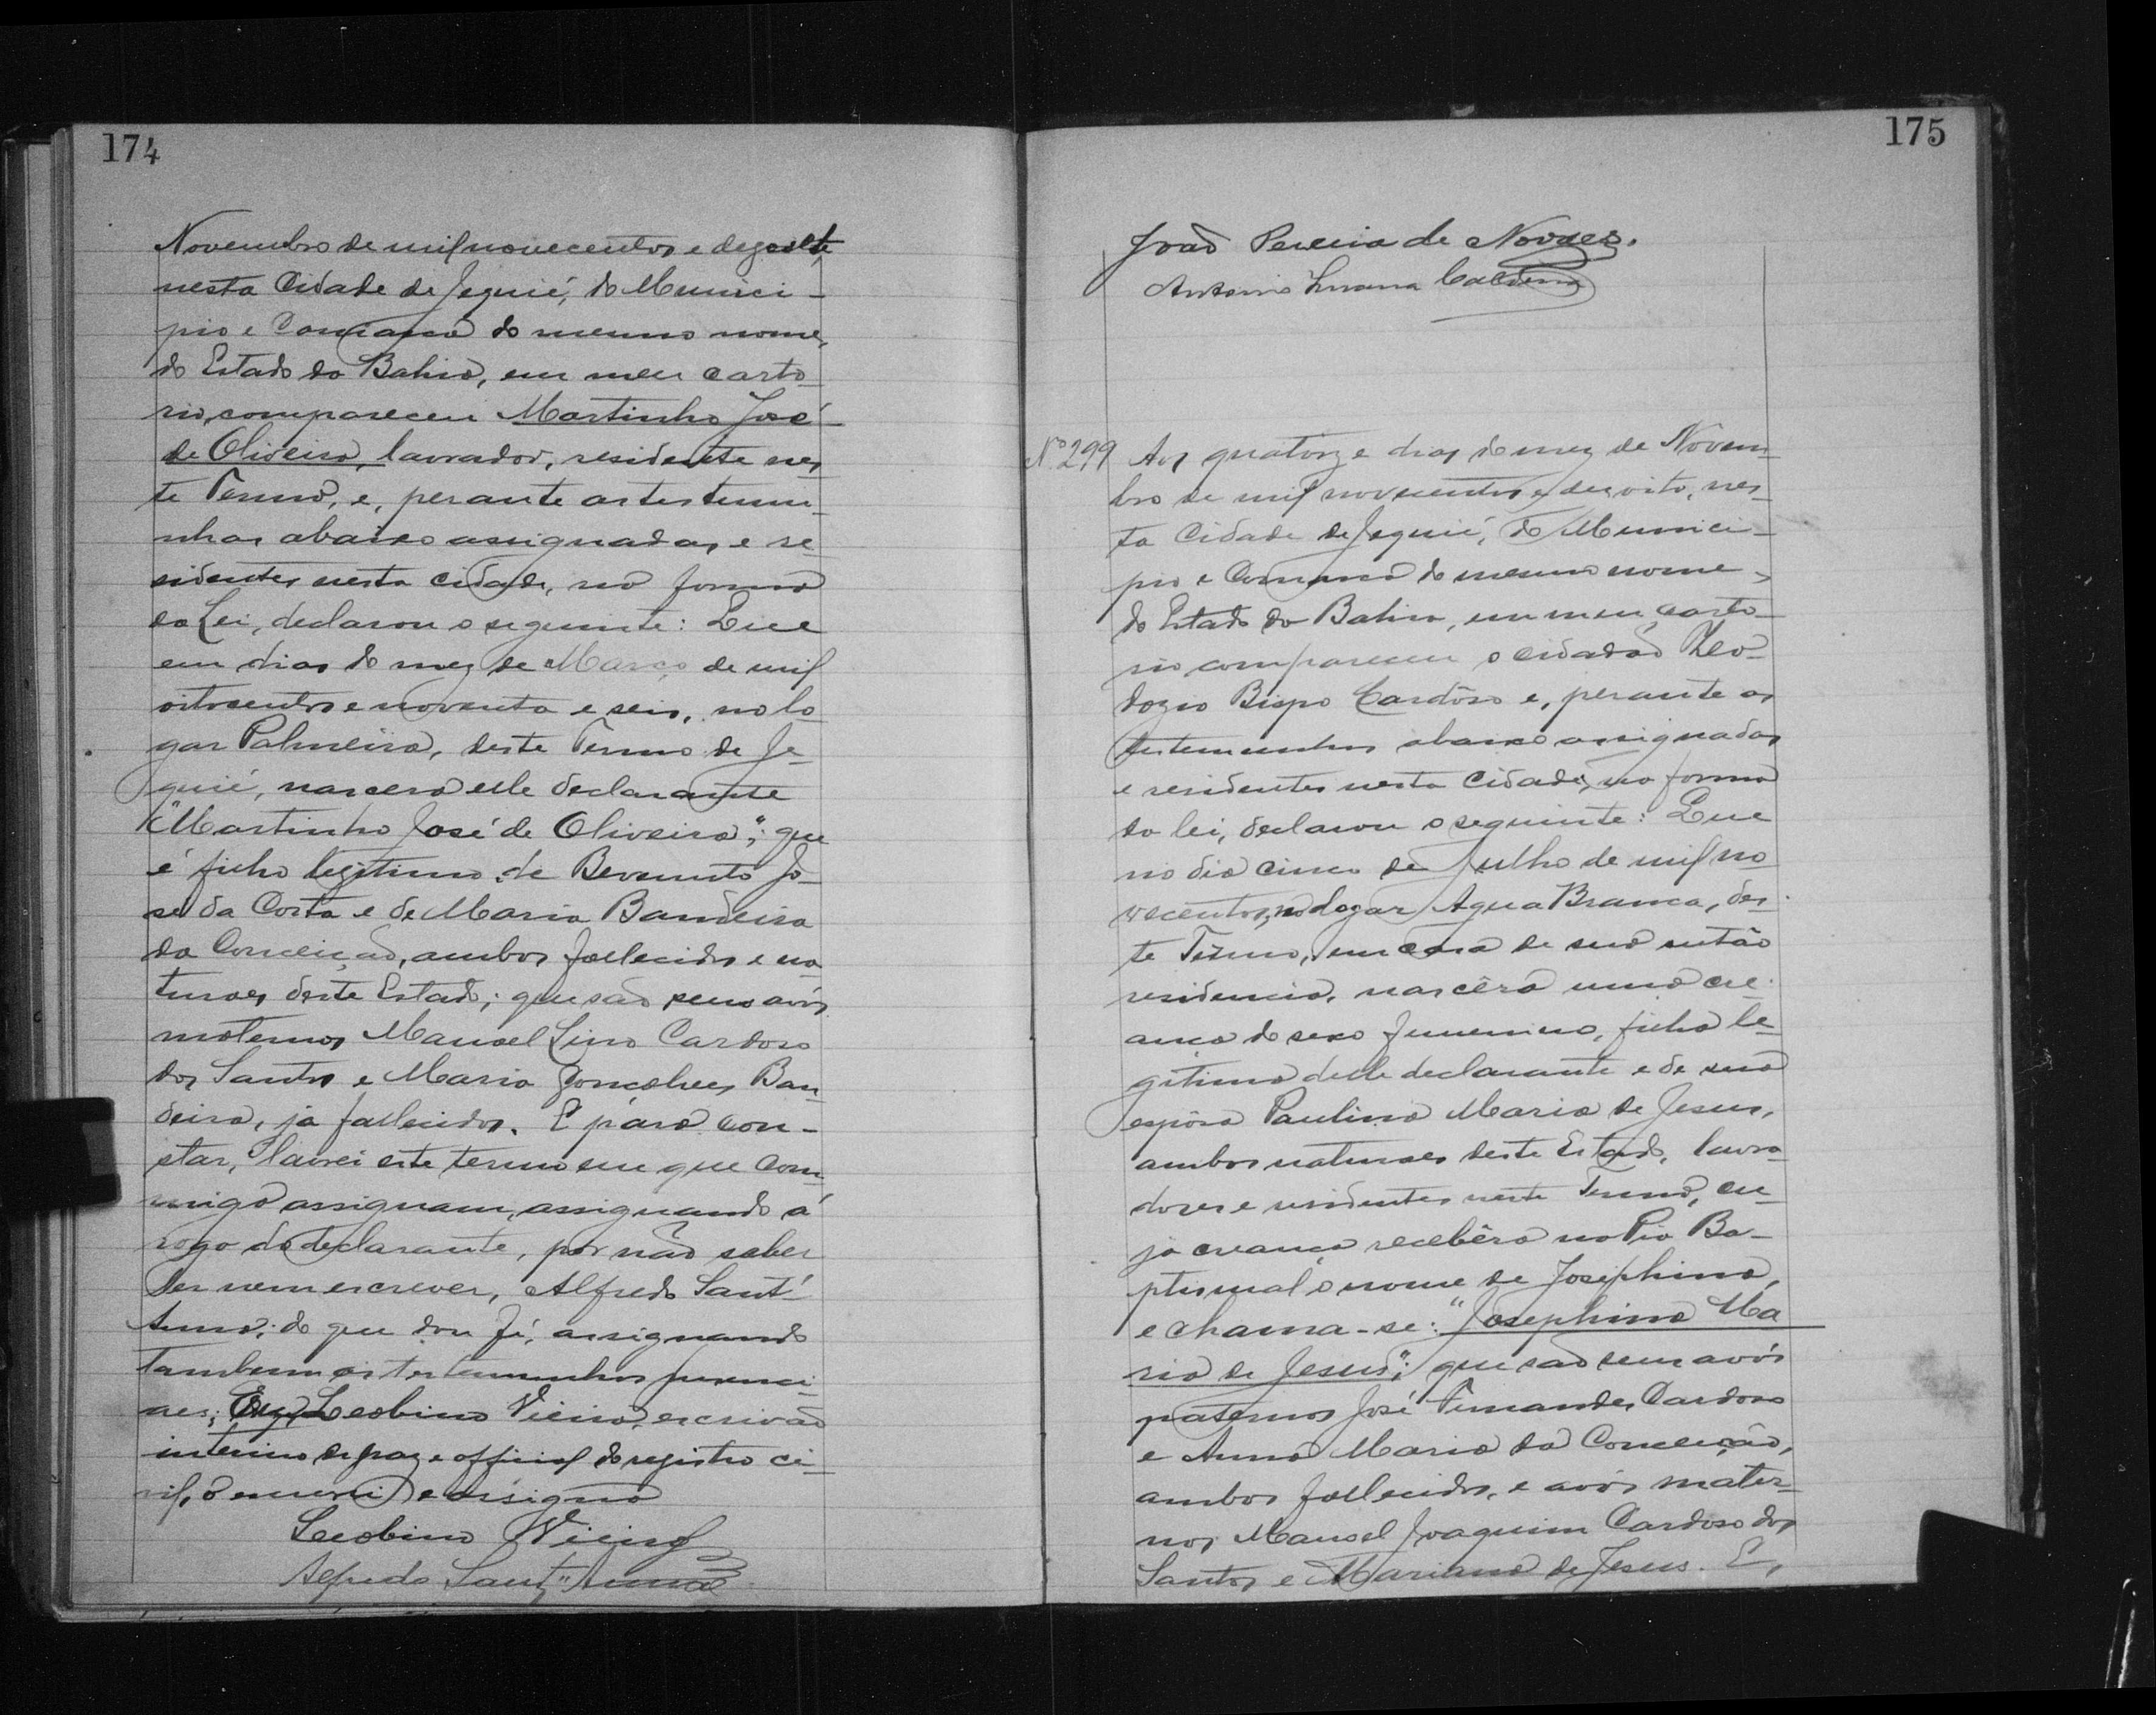 174
Novembro de mil novecentos e dezoito,
nesta Cidade de Jequié, do Munici-
pio e Comarca do mesmo nome,
do Estado da Bahia, em meu carto-
rio, compareceu Martinho José
de Oliveira, lavrador, residente nes-
te Termo, e, perante as testemu-
nhas abaixo assignadas, e re-
sidentes nesta cidade, na forma
da Lei, declarou o seguinte: Que
em dias do mez de Março de mil
oitocentos e noventa e seis, no lo-
gar Palmeira, deste Termo de Je-
quié, nascera elle declarante
"Martinho José de Oliveira"; que
é filho legitimo de Bevenuto Jo-
sé da Costa e de Maria Bandeira
da Conceição, ambos fallecidos e na-
turaes deste Estado; que são seus avós
maternos Manoel Lino Cardoso
dos Santos e Maria Gonçalves Ban-
deira, já fallecidos. E para con-
star, lavrei este termo em que com-
migo assignam, assignando á
rogo do declarante, por não saber
ler nem escrever, Alfredo Sant'
Anna; do que dou fé, assignando
tambem as testemunhas presenci-
aes; Eu, Leobino Vieira, escrivão
interino de paz e official do registro ci-
vil, o escrevi e assigno
Leobino Vieira
Alfredo Sant'Anna
175
João Pereira de Novaes.
Antonio Caldeira
Nº 299 Aos quatorze dias do mez de Novem-
bro de mil novecentos e dezoito, nes-
ta Cidade de Jequié, do Munici-
pio e Comarca do mesmo nome,
do Estado da Bahia, em meu carto-
rio compareceu o cidadão Theo-
dozio Bispo Cardôso e, perante as
testemunhas abaixo assignadas
e residentes nesta Cidade, na forma
da lei, declarou o seguinte: Que
no dia cinco de Julho de mil no-
vecentos, no logar Agua Branca, des-
te Termo, em casa de sua então
residencia, nascêra uma cre-
ança do sexo femenino, filha le-
gitima delle declarante e de sua
espôsa Paulina Maria de Jesus,
ambos naturaes deste Estado, lavra-
dores e residentes neste Termo, cu-
ja creança recebêra na Pia Ba-
ptismal o nome de Josephina,
e chama-se: "Josephina Ma-
ria de Jesus"; que são seus avós
paternos José Fernandes Cardoso
e Anna Maria da Conceição,
ambos fallecidos, e avós mater-
nos Manoel Joaquim Cardoso dos
Santos e Mariana de Jesus. E,